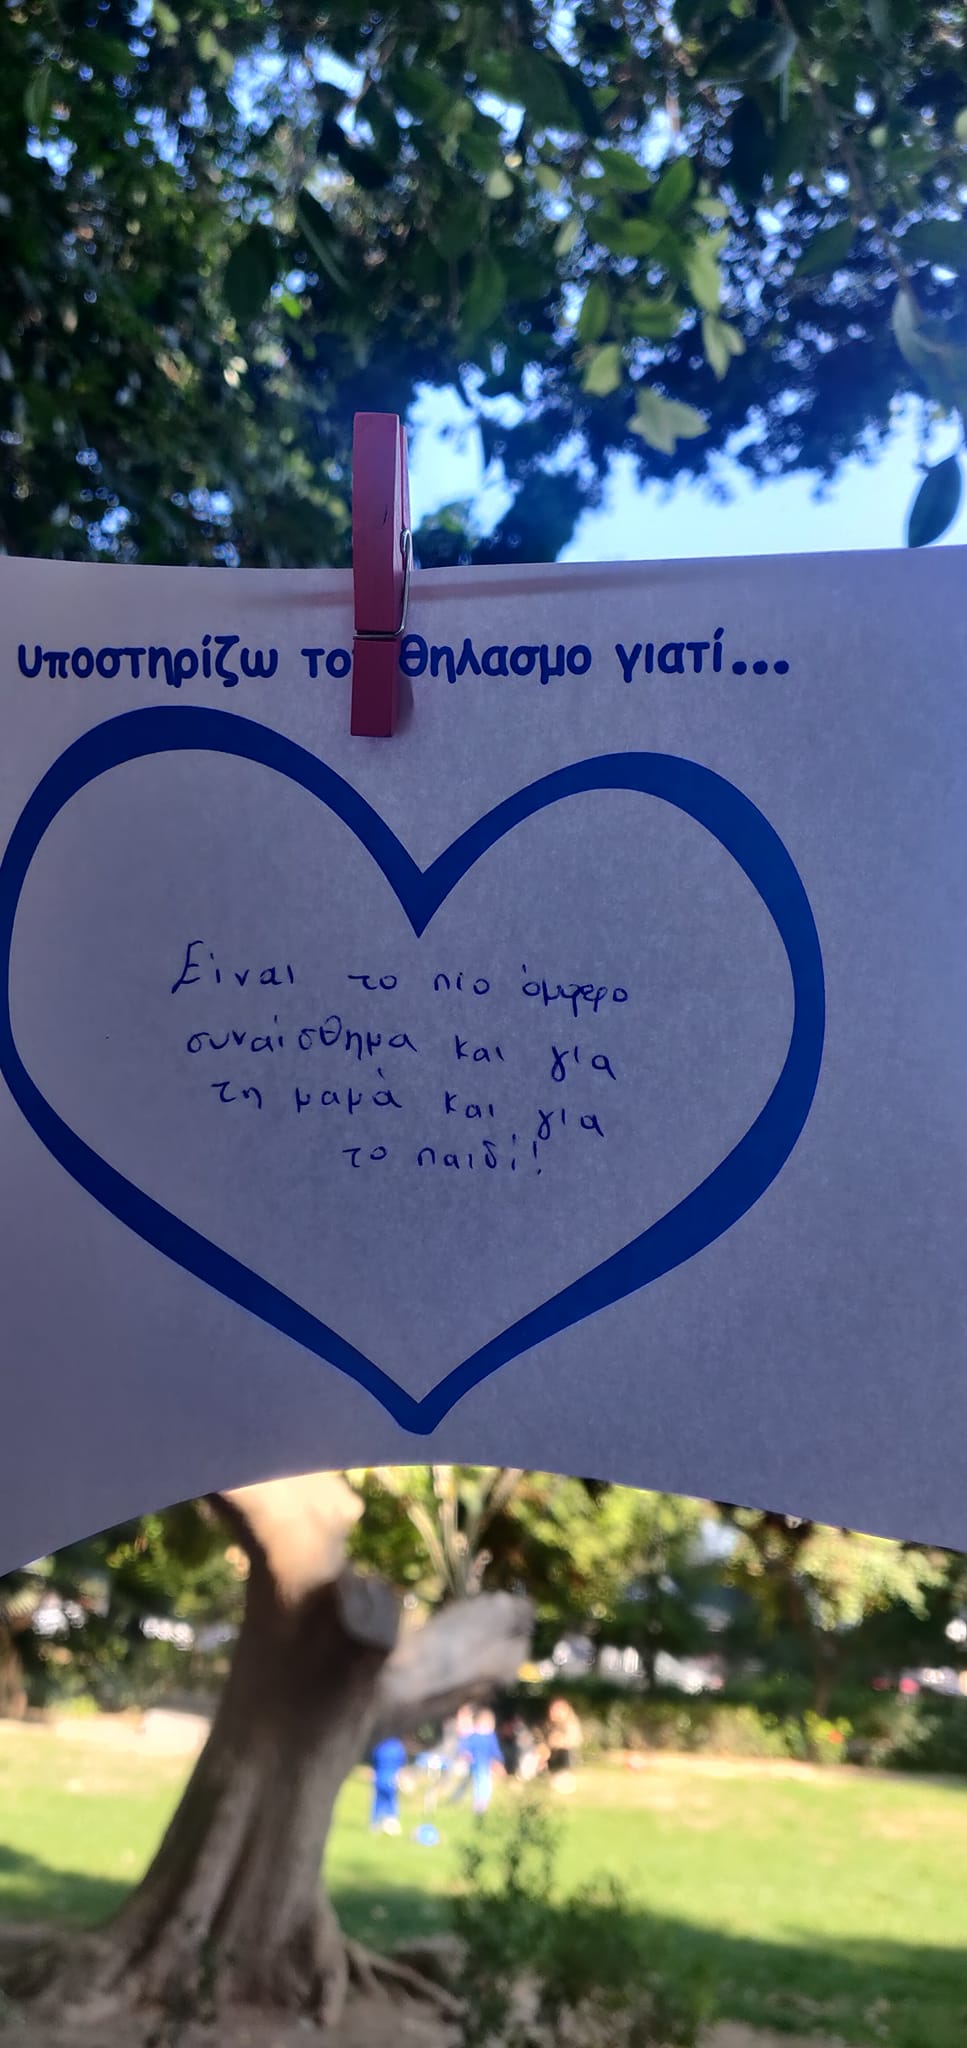 υποστηρίζω το θηλασμο γιατί...
Είναι το πιο όμφερο
συναίσθημα και για
τη μαμά και για
το παιδί!